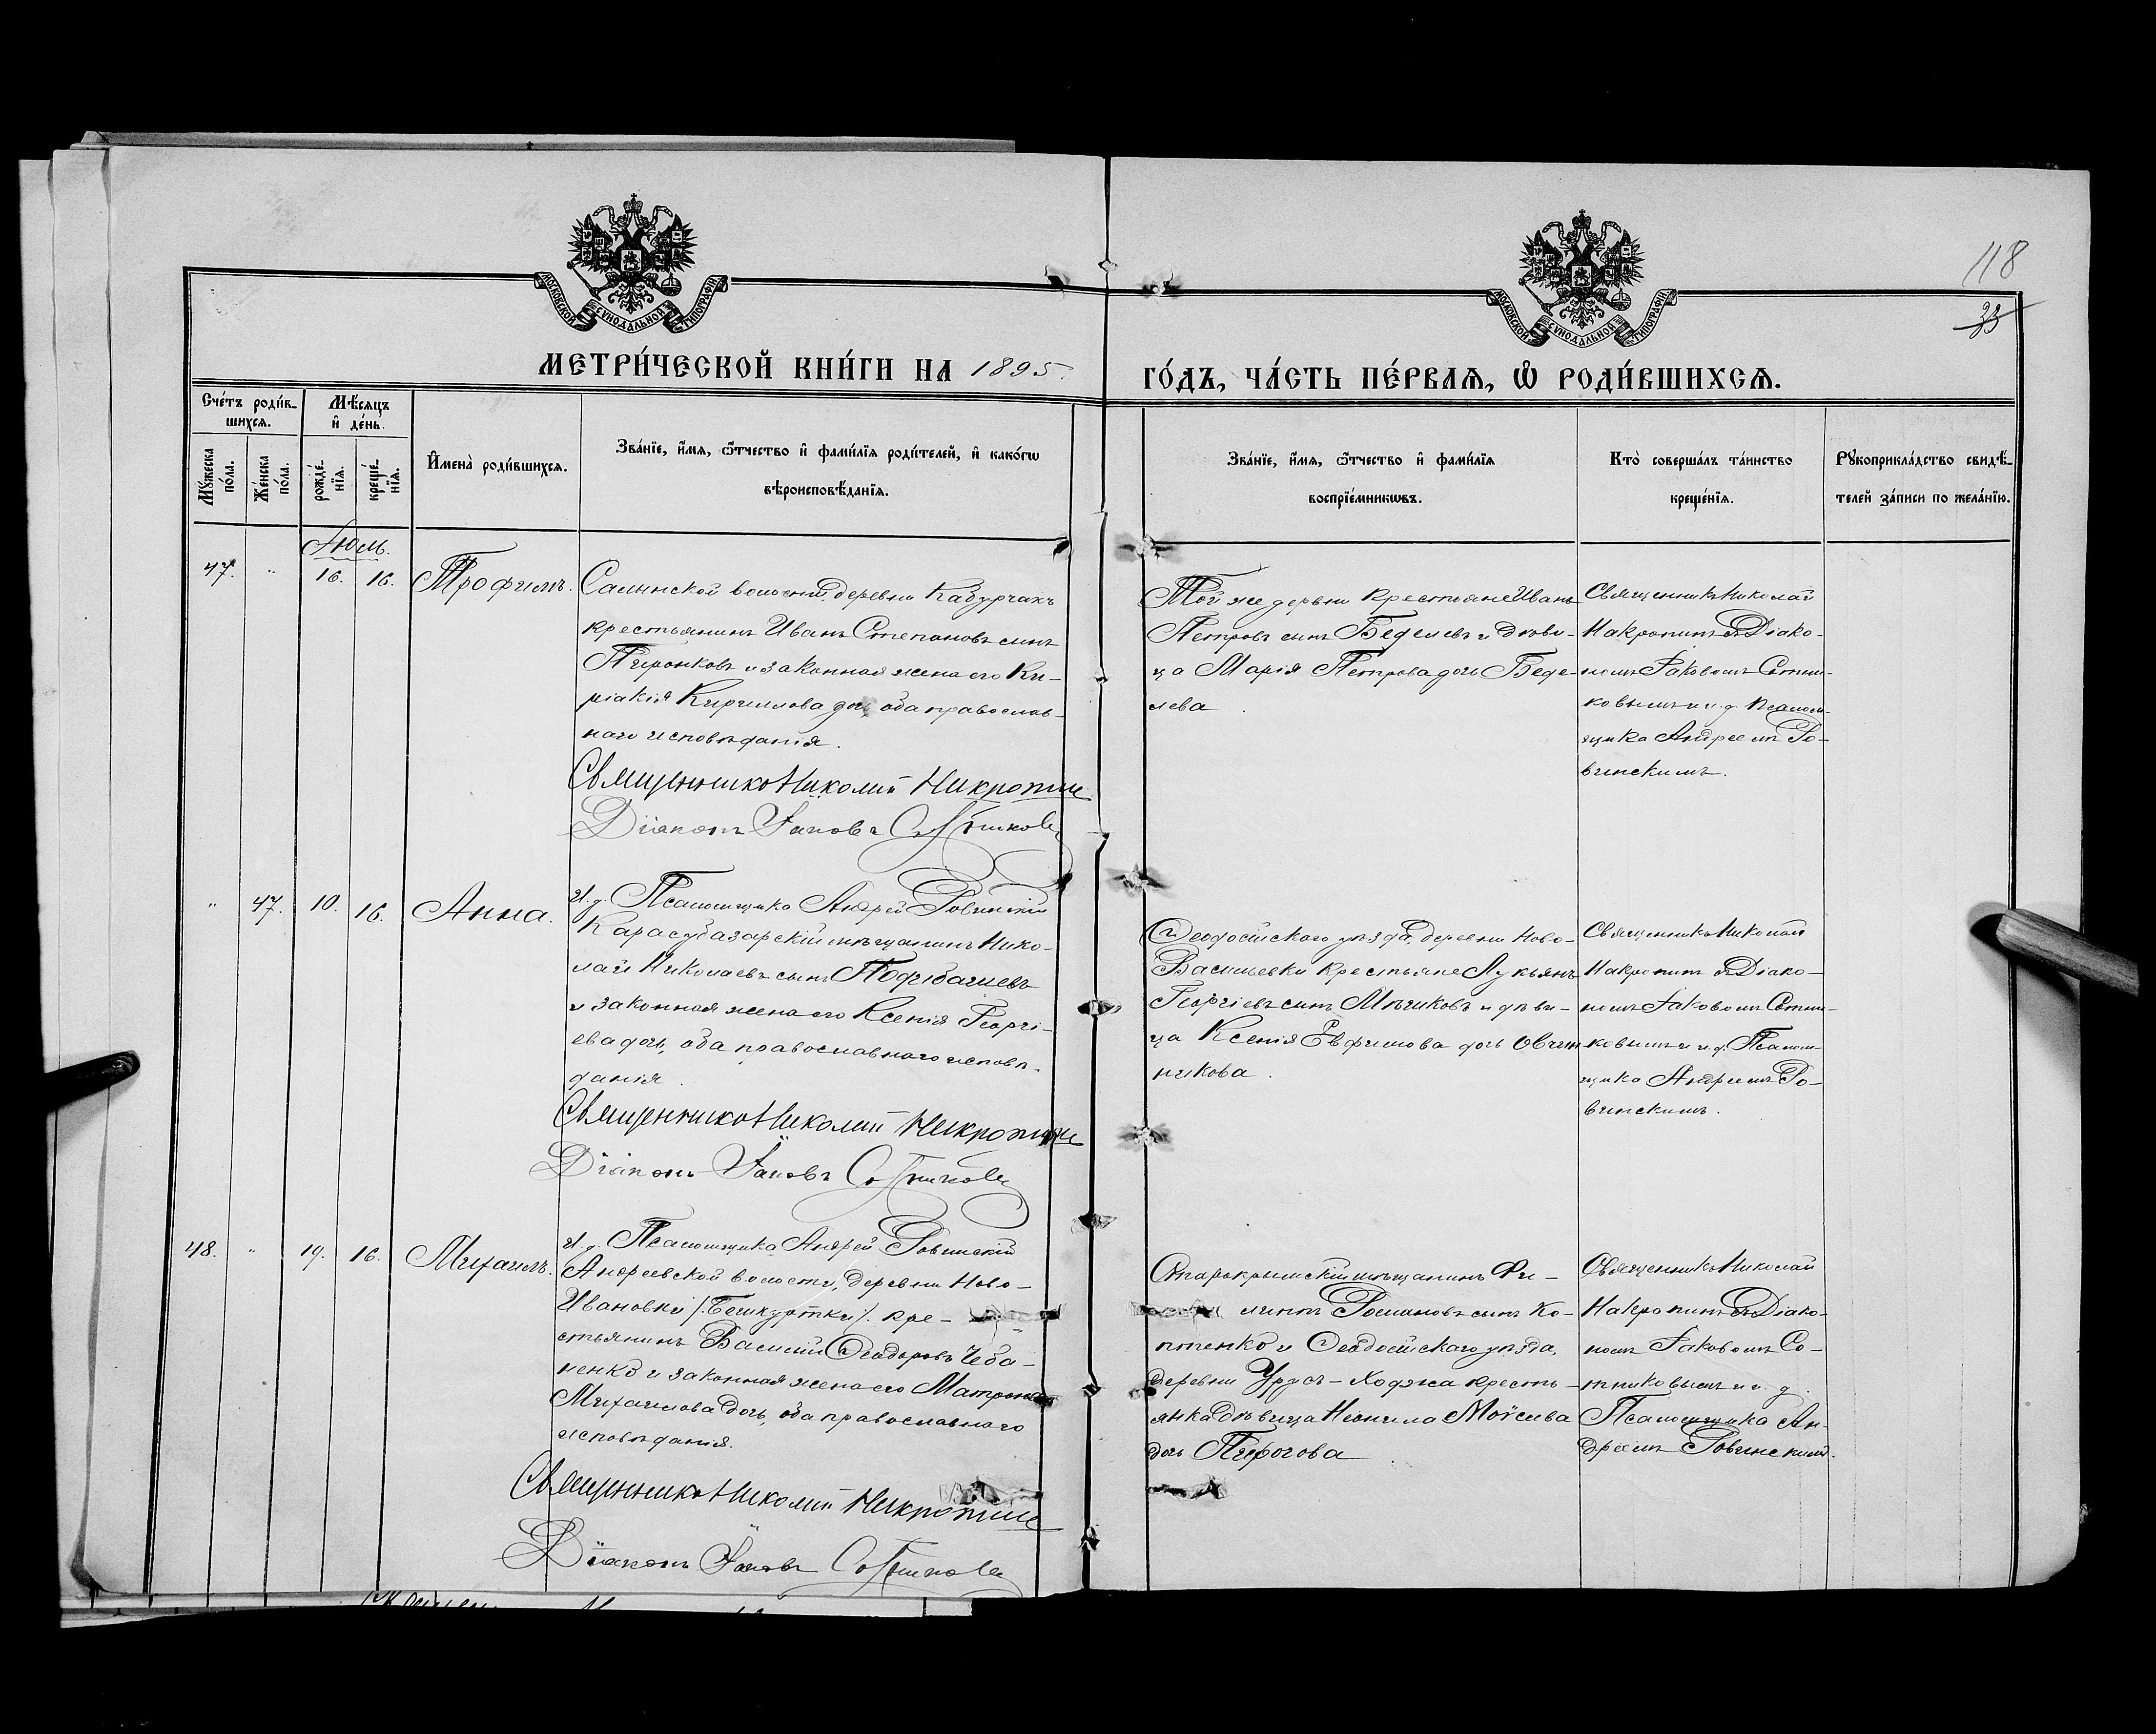 МОСКОВСКОЙ СѴНОДАЛЬНОЙ ТИПОГРАФІИ
МОСКОВСКОЙ СѴНОДАЛЬНОЙ ТИПОГРАФІИ
118
33
МЕТРИ́ЧЕСКОЙ КНИ́ГИ НА 1895
ГО́ДЪ, ЧА́СТЬ ПЕ́РВАѦ, Ѽ РОДИ́ВШИХСѦ.
Сче́тъ роди́в-
шихсѧ.
Мѣ́сѧцъ
и҆ де́нь.
Мꙋ́жеска
по́ла.
Же́нска
по́ла.
рожде́-
нїѧ.
креще́-
нїѧ.
И҆мена̀ роди́вшихсѧ.
Зва́нїе, и҆́мѧ, ѻ҆́тчество и҆ фами́лїѧ роди́телей, и҆ како́гѡ
вѣроисповѣ́данїѧ.
Зва́нїе, и҆́мѧ, ѻ҆́тчество и҆ фами́лїѧ
воспрїе́мникѡвъ.
Кто̀ соверша́лъ та́инство
креще́нїѧ.
Рꙋкоприкла́дство свидѣ́-
телей за́писи по жела́нїю.
Іюль.
47. " 16. 16. Трофимъ.
Салынской волости, деревни Кабурчакъ
крестьянинъ Иванъ Степановъ сынъ
Пиронковъ и законная жена его Ки-
ріакія Кириллова дочь, оба православ-
наго исповѣданія.
Священникъ Николай Накропинъ
Діаконъ Іаковъ Сотниковъ
И. д. Псаломщика Андрей Ровинскій
Той же дервни крестьяне Иванъ
Петровъ сынъ Беделевъ и дѣви-
ца Марія Петрова дочь Беде-
лева.
Священникъ Николай
Накропинъ съ Діако-
номъ Іаковомъ Сотни-
ковымъ и и. д. Псалом-
щика Андреемъ Ро-
винскимъ.
" 47. 10. 16. Анна.
Карасубазарскій мѣщанинъ Нико-
лай Николаевъ сынъ
и законная жена его Ксенія Георгі-
ева дочь, оба православнаго исповѣ-
данія.
Священникъ Николай Накропинъ
Діаконъ Іаковъ Сотниковъ
И. д. Псаломщика Андрей Ровинскій
Ѳеодосійскаго уѣзда, деревни Ново-
Васильевки крестьяне Лукьянъ
Георгіевъ сынъ Мѣчиковъ и дѣви-
ца Ксенія Евфимова дочь Овчин-
никова.
Священникъ Николай
Накропинъ съ Діако-
номъ Іаковомъ Сотни-
ковымъ и и. д. Псалом-
щика Андреемъ Ро-
винскимъ.
48. " 19. 16. Михаилъ.
Андреевской волости, деревни Ново-
Ивановки /Бешкуртки/. кре-
стьянинъ Василій Ѳеодоровъ Чеба-
ненко и законная жена его Матрона
Михаилова дочь, оба православнаго
исповѣданія.
Священникъ Николай Накропинъ
Діаконъ Іаковъ Сотниковъ
Старокрымскій мѣщанинъ Фи-
липпъ Романовъ сынъ Ко-
птенко и Ѳеодосійскаго уѣзда,
деревни Урусъ-Ходжа кресть-
янка дѣвица Неонила Моѵсеева
дочь Пирогова.
Священникъ Николай
Накропинъ съ Діако-
номъ Іаковомъ Со-
тниковымъ и и. д.
Псаломщика Ан-
дреемъ Ровинскимъ.